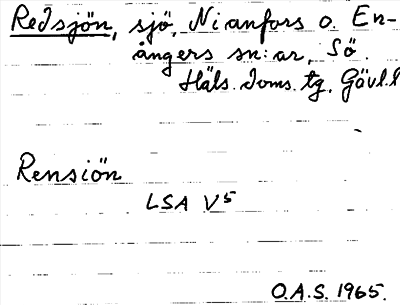 Redsjön, sjö, Nianfors o. En-
ångers sn:ar, Sö.
Häls. doms. tg, Gävl. l
Rensiön
LSA V5
O.A.S. 1965.